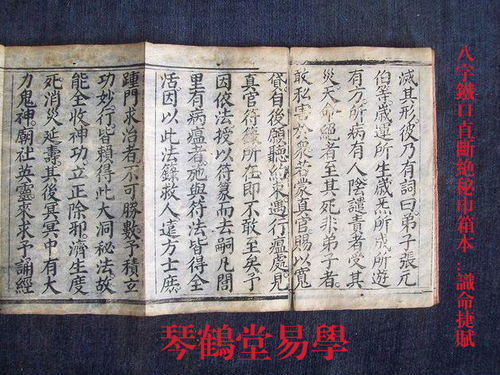 八字鐵口直斷絕秘巾箱本：識命捷賦
滅其形彼乃有詞曰弟子張元
伯等歲運所生歲炁所成所遊
有方所病有人陰譴責者受其
災天命絕者至其死非弟子者
敢私害於衆若蒙真官賜以寬
貸自後願聽約束遇行瘟處見
真官符籙所在即不敢至矣予
因依法授以符篆而去嗣凡間
里有病瘟者施與符法皆得全
活因以此法錄救人遠方士庶
踵門求治者不可勝數予積立
功妙行皆賴得此大洞秘法故
能全收神功立正除邪濟生度
死消災延壽其後冥中有大
力鬼神廟社英靈來求予誦經
琴鶴堂易學